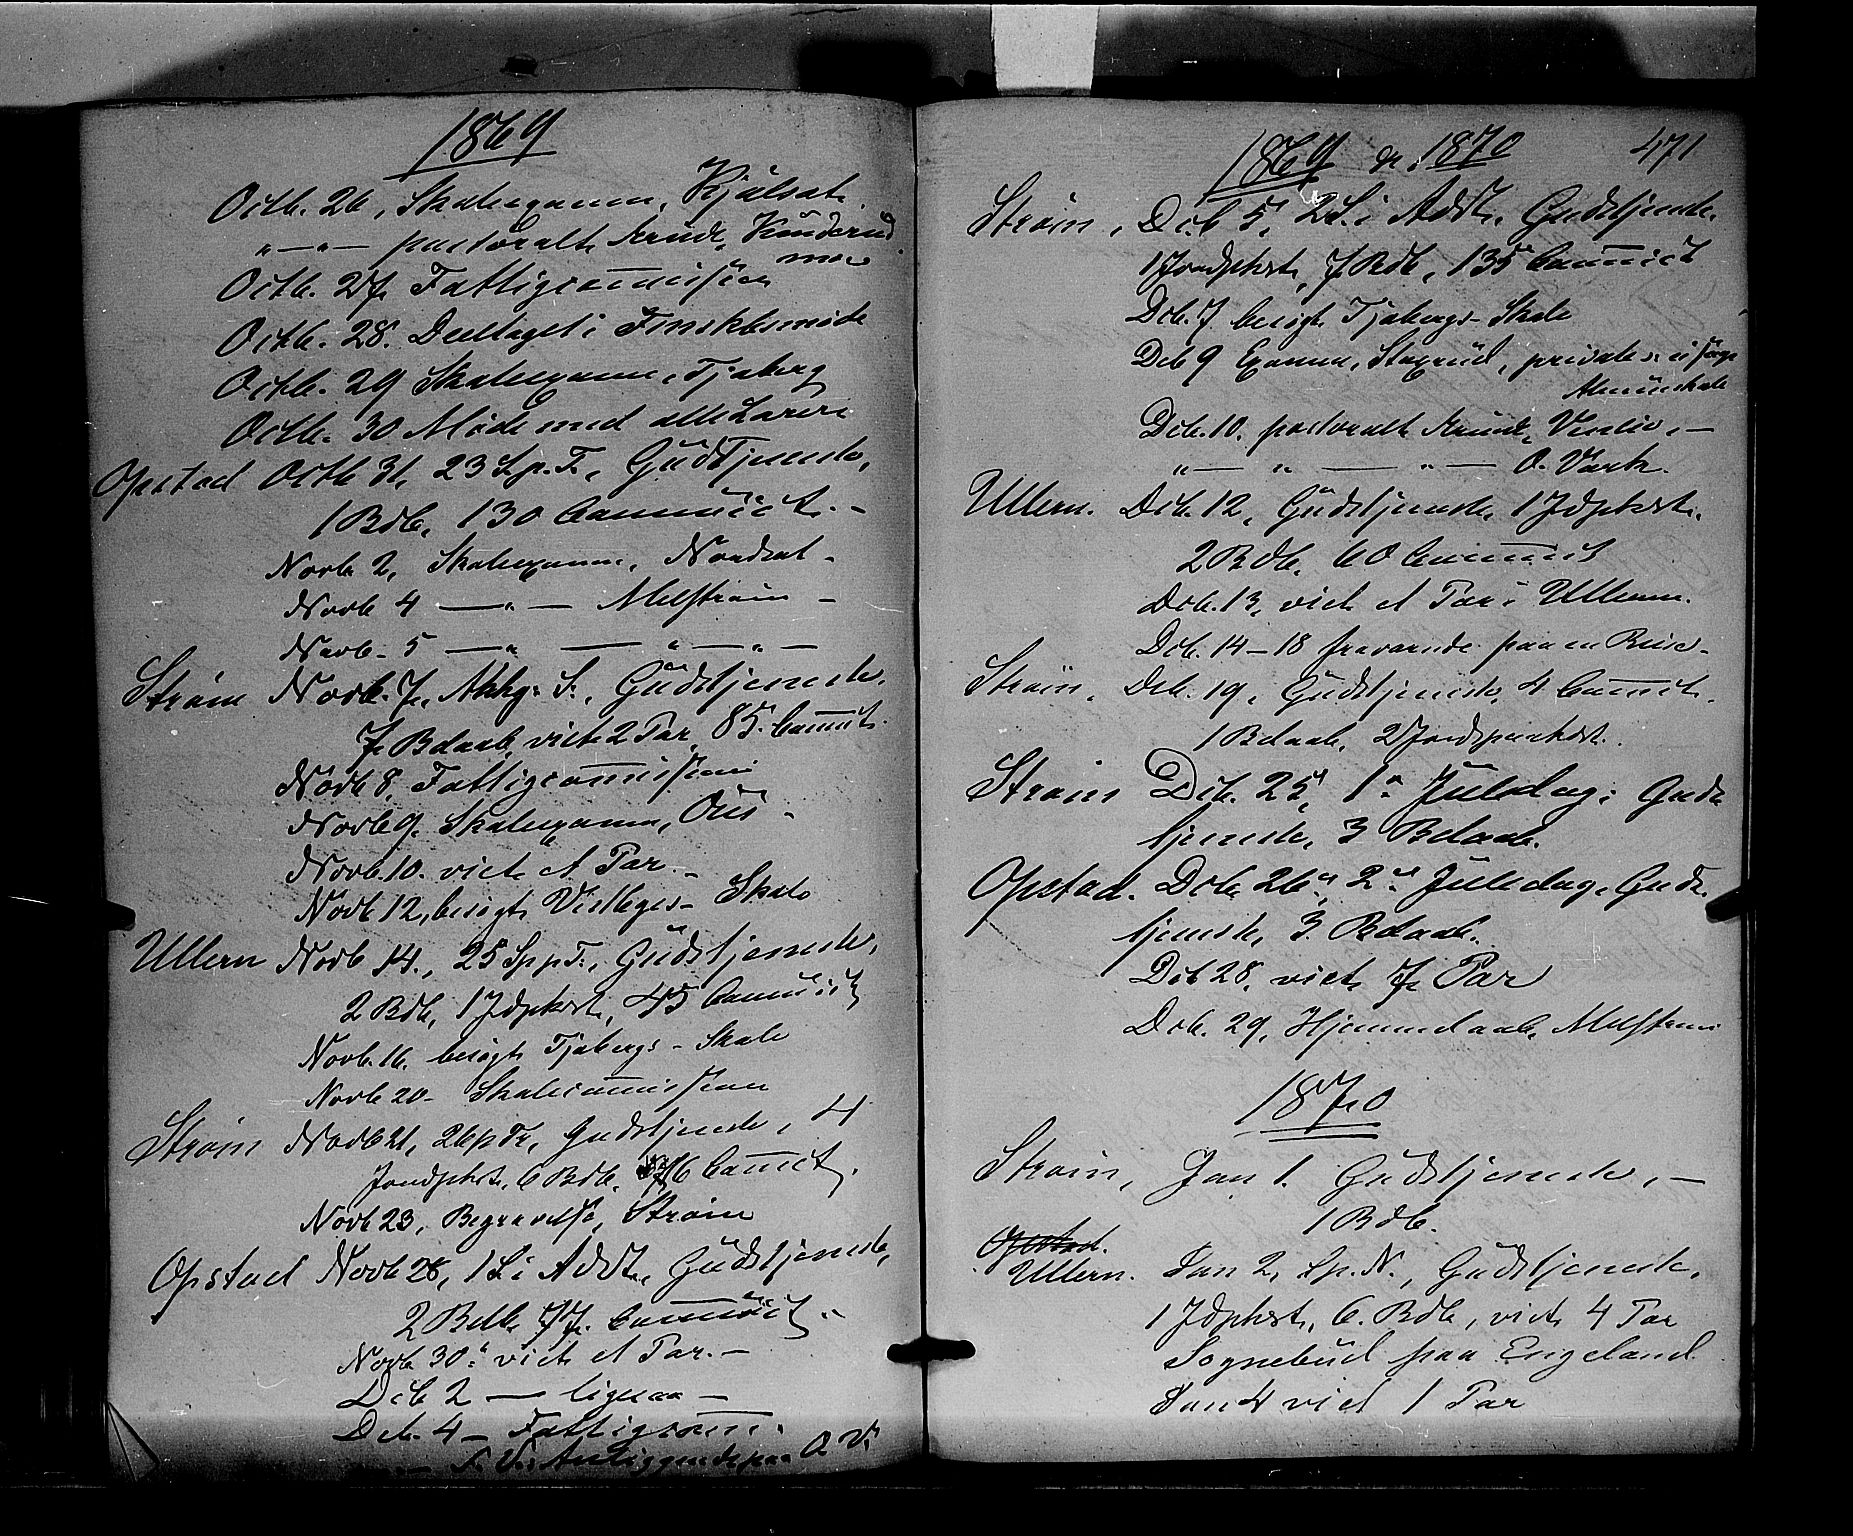 1869
Octb. 26, Skoleexamen, Kjølsæt.
" — " — pastoralt Ærinde, Kunderud
Octb. 27. Fattigcom̅ission
moe
Octb. 28. Deeltaget i Forsktsmøde
Octb. 29 Skoleexamen, Tjaberg
Octb. 30 Møde med alle Lærere
Opstad Octb 31, 23 S. p. T., Gudstjeneste,
1 Bdb, 130 Com̅unict. -
Novb 2, Skoleexamen, Nordset -
Novb 4 — " — Melstrøm -
Novb. 5 — " — " — " —
Strøm Novb. 7, Alhg. S., Gudstjeneste,
7 Bdaab, viet 2 Par, 85. Com̅ct.
Novb 8, Fattigcom̅ission
Novb 9. Skoleexamen, Ous -
Novb. 10. viet et Par. -
Novb 12, besøgt Vestbyes- Skole
Ullern Novb 14., 25 S. p. T., Gudstjeneste,
2 Bdb, 1 Jdpkst, 45 Com̅unict
Novb. 16. besøgt Tjabergs - Skole
Novb 20 - Skolecom̅ission
Strøm Novb 21, 26 p Tr, Gudstjeneste, 4
Jordpkst, 6 Bdb, 76 Com̅ct.
Novb 23, Begravelse, Strøm
Opstad Novb 28, 1 S. i Advt., Gudstjeneste,
2 Bdb 77. Com̅unict. -
Novb 30. viet et Par. -
Deb 2 — ligesaa —
Deb. 4 - Fattigcom̅.
Anliggende paa O. V.
1869 og 1870
471
Strøm, Dcb 5, 2 S. i Advt, Gudstjeneste.
1 Jordpkst, 7 Bdb, 135 Com̅unict
Dcb. 7 besøgt Tjabergs- Skole
Dcb 9 Examen, Staxrud, private
Almueskole
Dcb. 10. pastoralt Ærinde, —
" — " — " — O. Værk.
Ullern. Dcb. 12, Gudstjeneste, 1 Jdpkst,
2 Bdb, 60 Com̅unict
Dcb. 13, viet et Par i Ullern.
Dcb. 14 - 18 fraværende paa en Reise -
Strøm, Dcb. 19, Gudstjeneste, 4 Com̅ct.
1 Bdaab, 2 Jordspaakst.
Strøm Dcb. 25, 1ste Juledag: Guds
tjeneste, 3 Bdaab.
Opstad. Dcb. 26, 2den Juledag, Guds
tjeneste, 3. Bdaab.
Dcb 28, viet 7 Par
Dcb. 29, Hjemmedaab, Melstrøm
1870
Strøm, Jan 1. Gudstjeneste, —
1 Bdb.
Opstad.
Ullern. Jan 2, S. p. N., Gudstjeneste,
1 Jdpkst, 6. Bdb, viet 4 Par
Sognebud paa Engeland
Jan 4 viet 1 Par